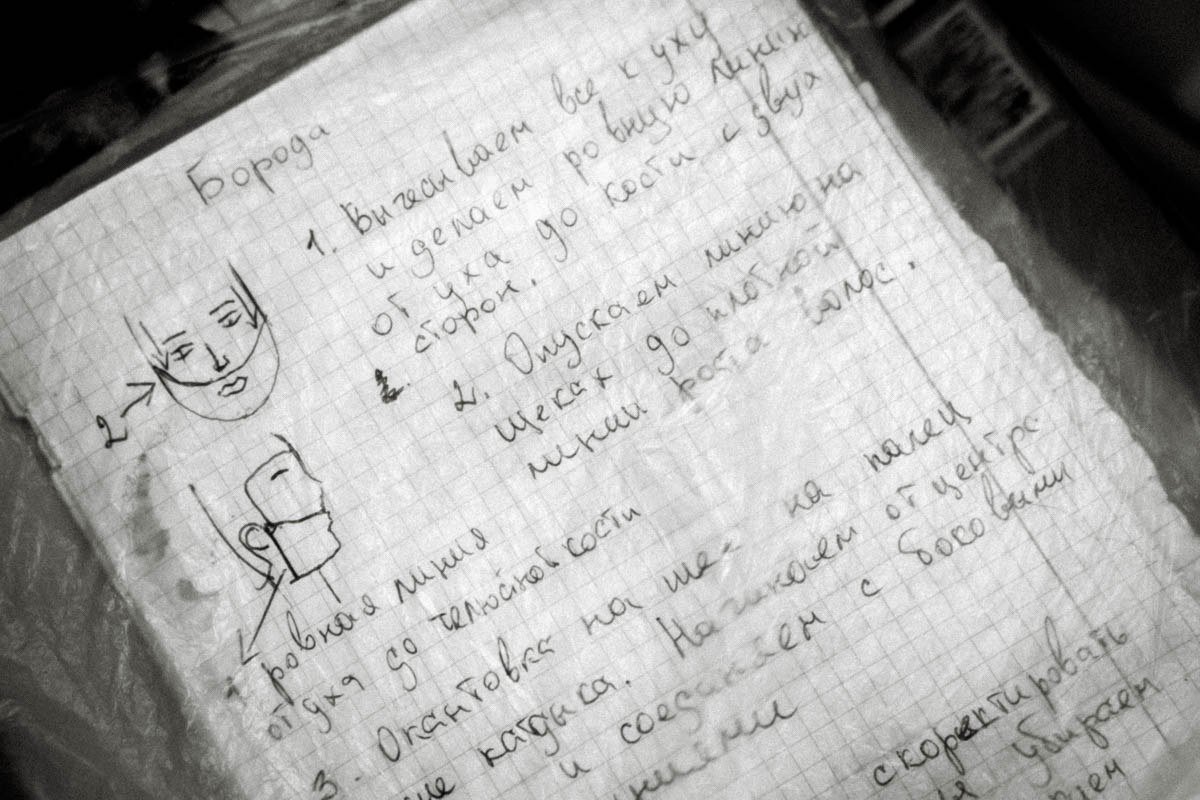 Борода
1. Вычесываем все к уху
и делаем ровную линию
от уха до кости с двух
сторон.
2. Опускаем линию на
щеках до плотной
линии роста волос.
2
ровная линия
от уха до челюстной кости
3. Окантовка на шее на палец
кадыка. Начинаем от центра
и соединяем с боковыми
линиями
скоректировать
убираем